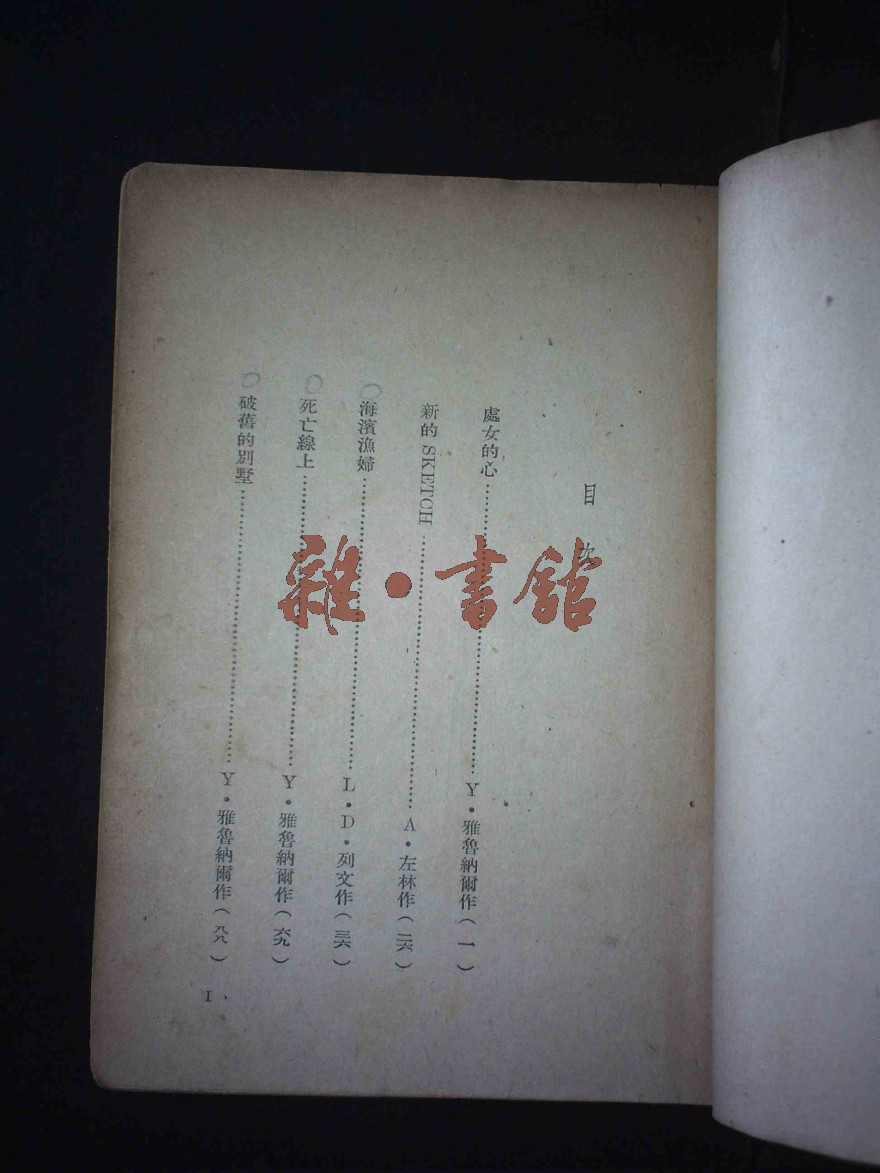 目次
處女的心……Y・雅魯納爾作(一)
新的 SKETCH……A・左林作(二六)
海濱漁婦……L・D・列文作(三六)
死亡線上……Y・雅魯納爾作(六九)
破舊的別墅……Y・雅魯納爾作(八八)
I
雜・書館